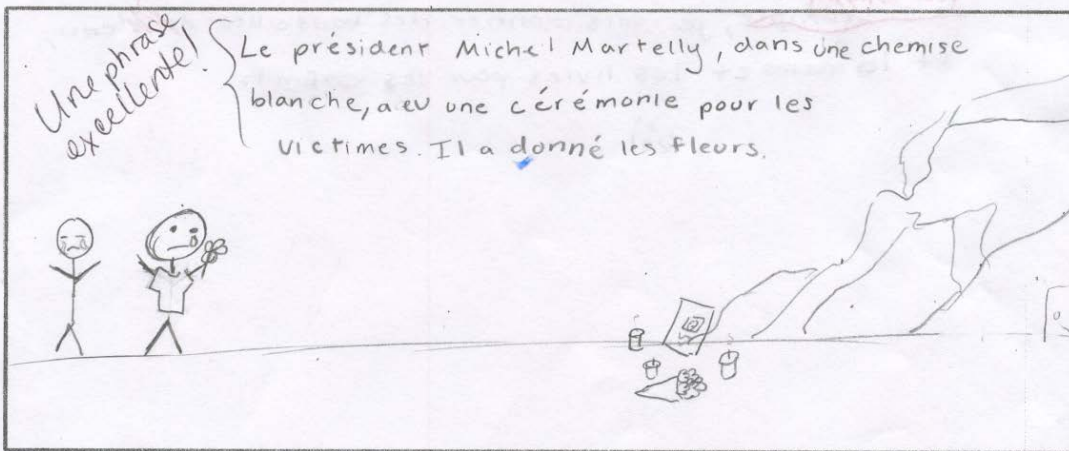 Une phrase
excellente!
Le président Michel Martelly, dans une chemise
blanche, a eu une cérémonie pour les
victimes. Il a donné les fleurs.